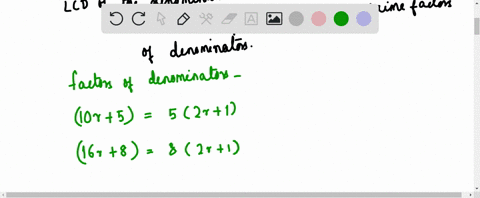 LCD of the
factors
of denominators.
factors of denominators -
(10x+5) = 5(2x+1)
(16x+8) = 8(2x+1)